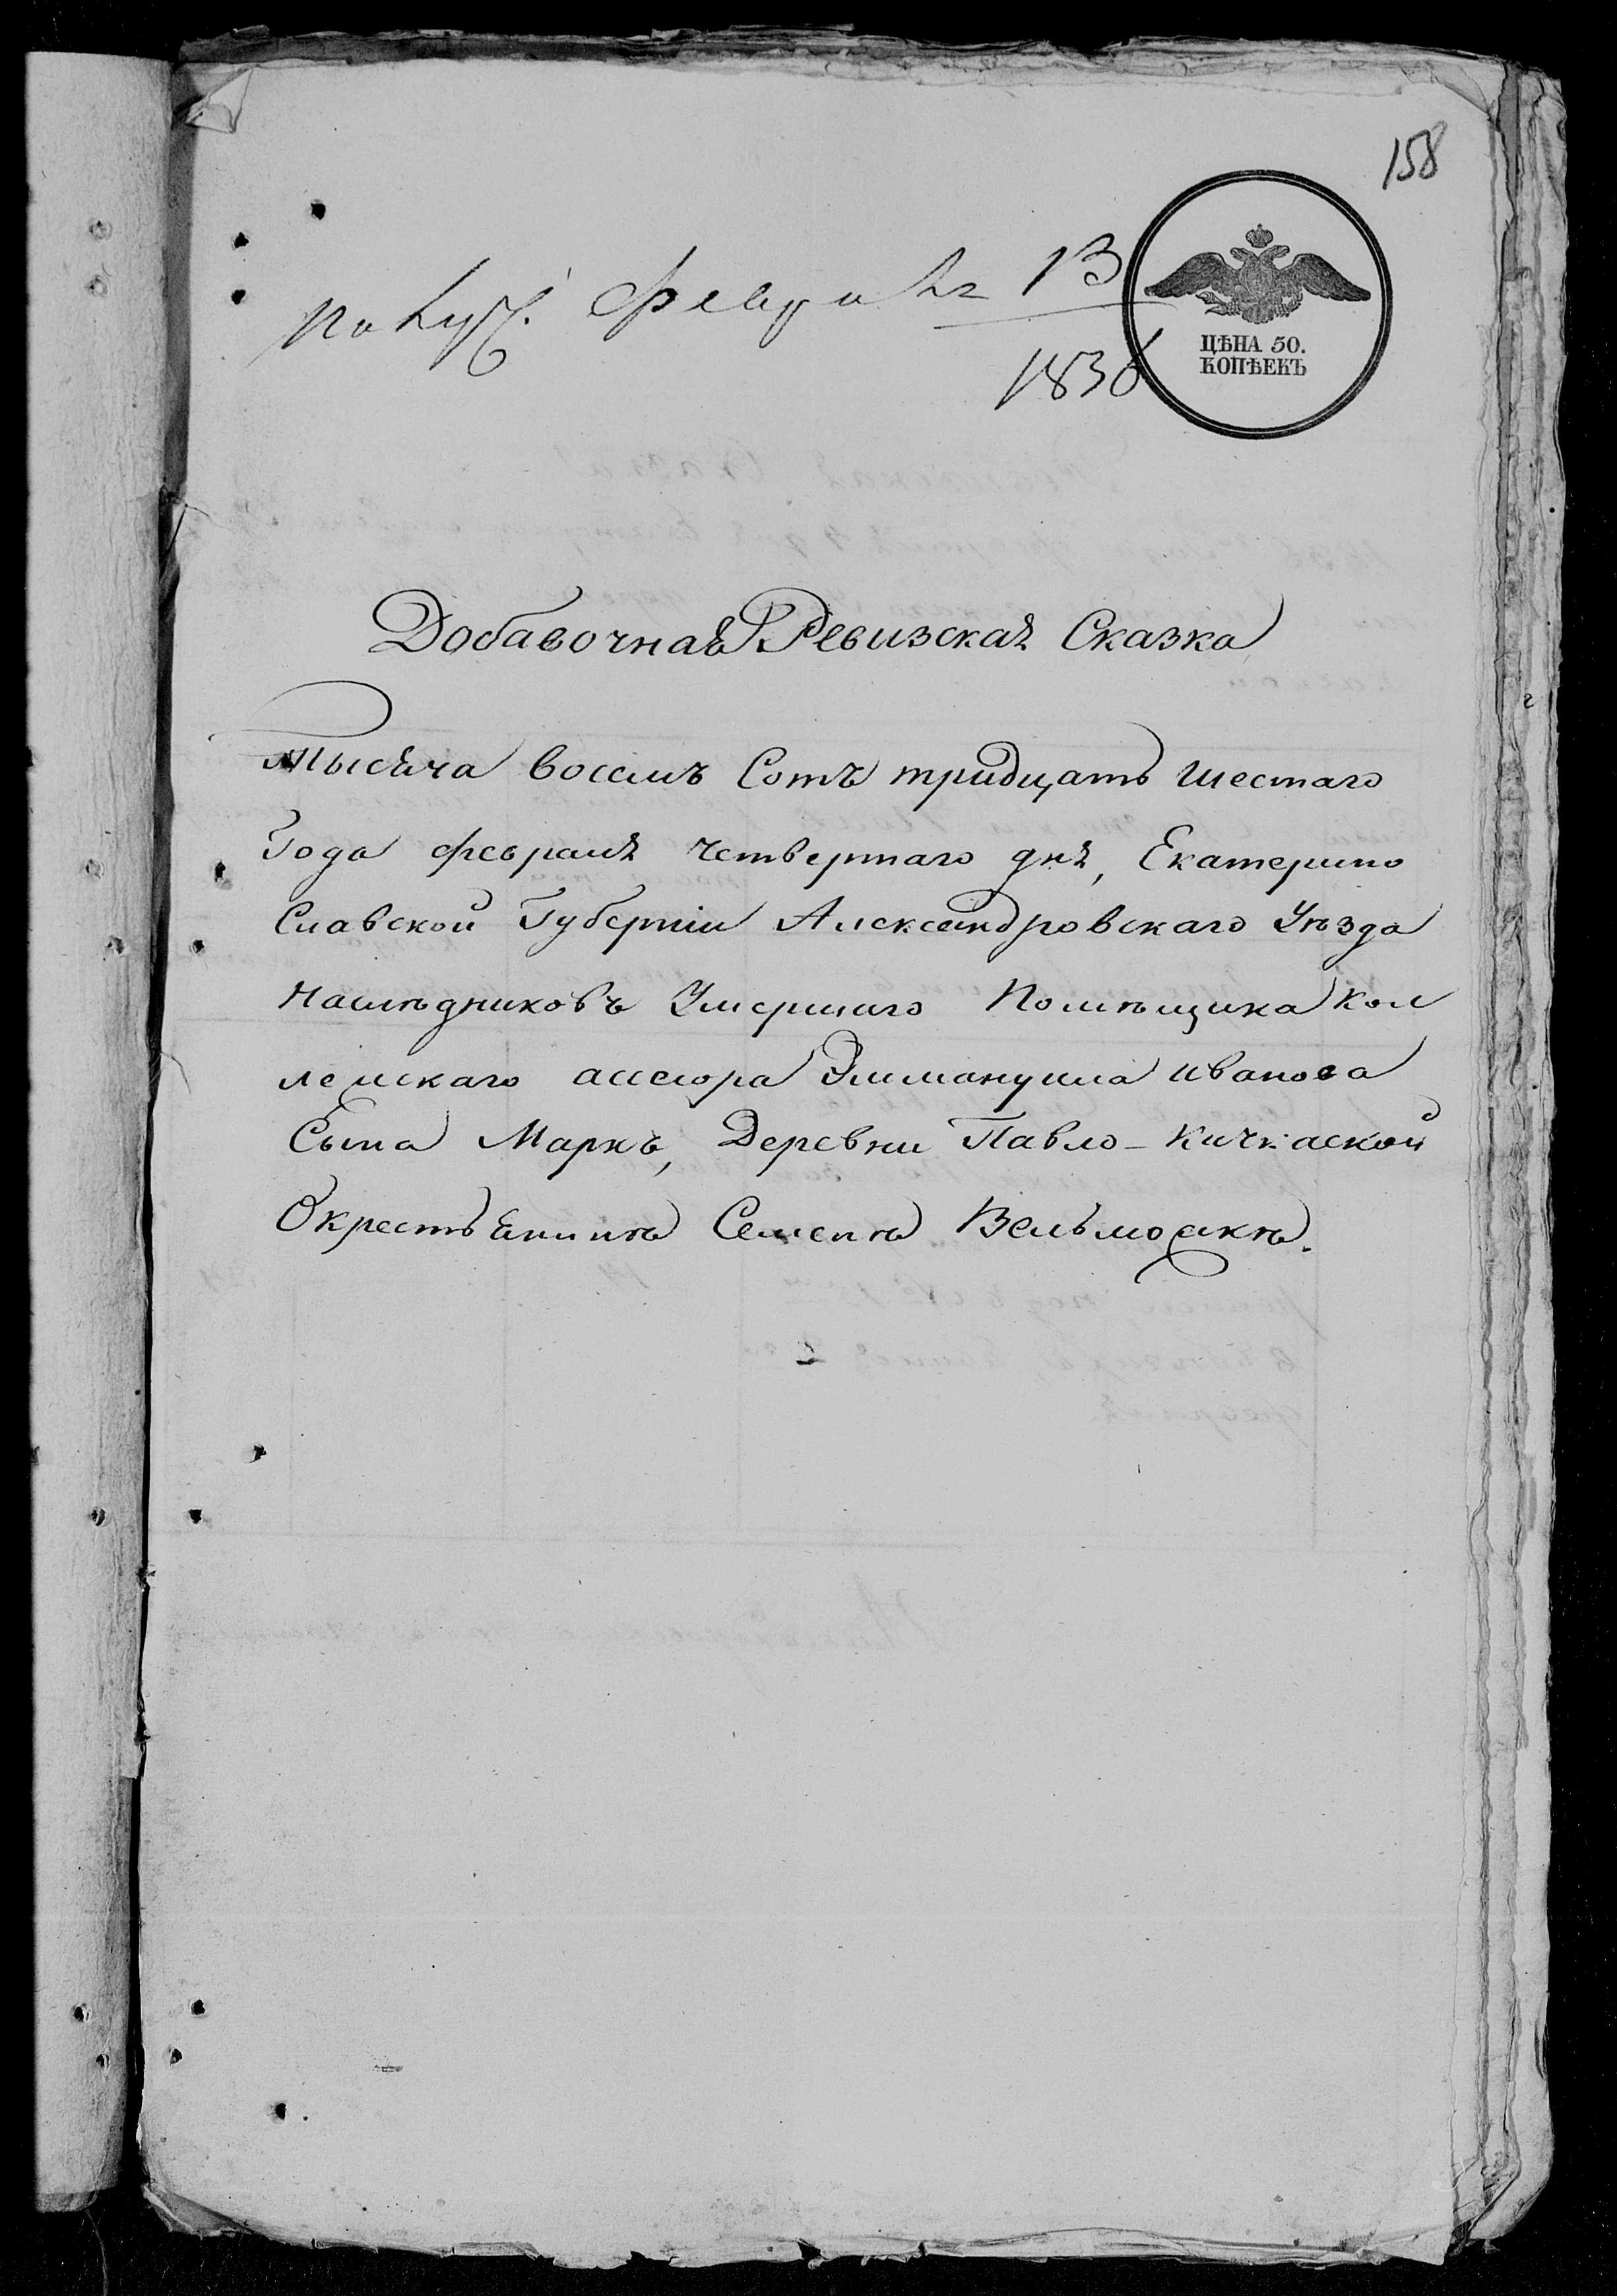 158
Получ. Февраля 13
1836
ЦѢНА 50.
КОПѢЕКЪ
Добавочная Ревизская Сказка
Тысяча восемъ Сотъ тридцать шестаго
Года февраля четвертаго дня, Екатерино
Славской Губерніи Александровскаго Уѣзда
Наслѣдниковъ Умершаго Помѣщика Кол
лежскаго ассесора Эммануила Иванова
Сына Маркъ, Деревни Павло-Кичкаской
О крестьянинѣ Семенѣ Вельможкѣ.